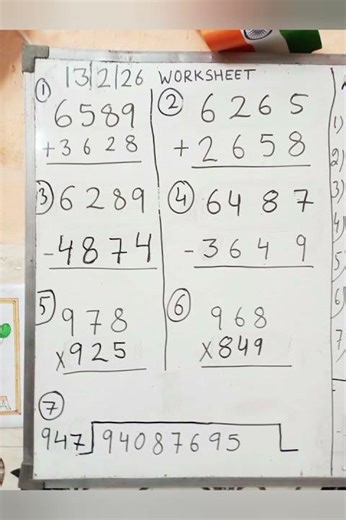 13/2/26 WORKSHEET
① 6589
+3628
② 6265
+2658
③ 6289
-4874
④ 6487
-3649
⑤ 978
x925
⑥ 968
x849
⑦
947 94087695
1)
2)
3)
4)
5)
6)
7)